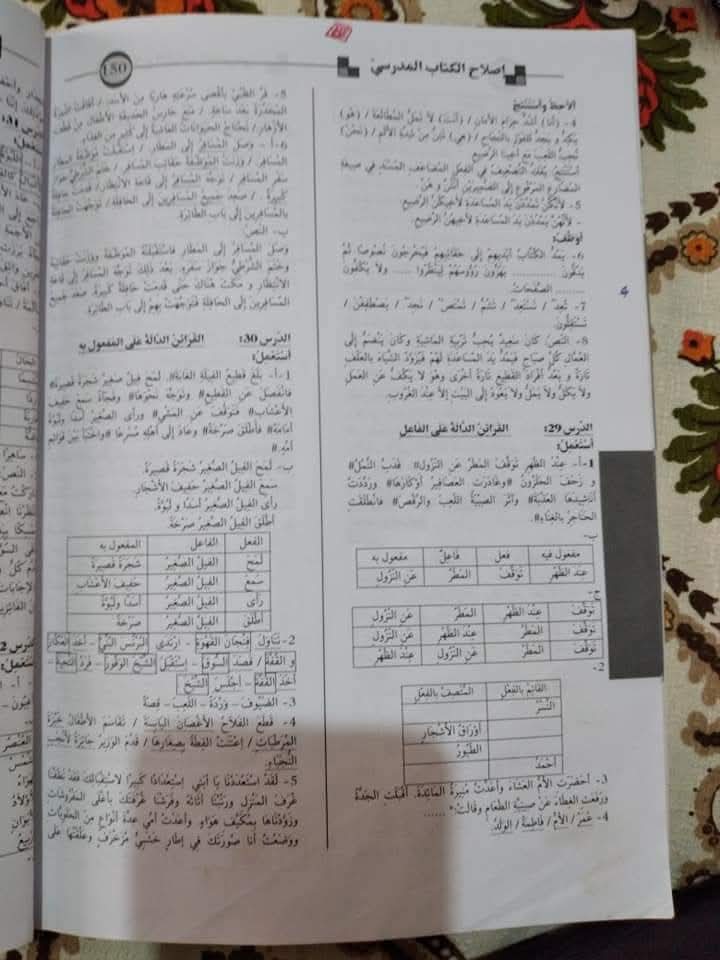 إصلاح الكتاب المدرسي
150
ألاحظ وأستنتج
4- (أنا) أشد حزام الأمان / (أنت) لا تمل المطالعة / (هو)
يكد و يجد للفوز بالنجاح / (هي) تئن من شدة الألم / (نحن)
نحب اللعب مع أخينا الرضيع
أستنتج: يفك التضعيف في الفعل المضاعف المسند في صيغة
المضارع المرفوع إلى الضميرين أنتن و هن
5- لأنكن تمددن يد المساعدة لأخيكن الرضيع.
- لأنهن يمددن يد المساعدة لأخيهن الرضيع.
أوظف:
6- يمد الكتاب أيديهم إلى حقائبهم فيخرجون نصوصا ثم
يهزون رؤوسهم لينظروا ..... ولا يكفون
الصفحات.
7- تعد / تستعد / تشتم / تمتص / تجد / يصطففن /
تستغلون
8- النص: كان سعيد يحب تربية الماشية وكان ينضم إلى
العمال كل صباح فيمد يد المساعدة لهم فيزود الشياه بالعلف
تارة و يعد أفراد القطيع تارة أخرى وهو لا يكف عن العمل
ولا يكل ولا يمل ولا يعود إلى البيت إلا عند الغروب.
الدرس 29: القرائن الدالة على الفاعل
أستعمل:
1-أ- عند الظهر توقف المطر عن النزول# فدب النمل#
و زحف الحلزون #وغادرت العصافير أوكارها# ورددت
أناشيدها العذبة# وآثر الصبية اللعب والرقص# فانطلقت
الحناجر بالغناء#.
ب-
مفعول فيه | فعل | فاعل | مفعول به
عند الظهر | توقف | المطر | عن النزول
ج-
توقف | عند الظهر | المطر | عن النزول
توقف | المطر | عند الظهر | عن النزول
توقف | المطر | عن النزول | عند الظهر
2-
القائم بالفعل | المتصف بالفعل
النسر
أوراق الأشجار
الطيور
أحمد
3- أحضرت الأم العشاء وأعدت منيرة المائدة. أقبلت الجدة
ورفعت الغطاء عن صينية الطعام وقالت:" ......
4- عمر / الأم / فاطمة / الولد.
8- فر الظبي بأقصى سرعته هاربا من الأسد. / أفاقت النمرة
المخدرة بعد ساعة. / منع حارس الحديقة الأطفال من قطف
الأزهار / تحتاج الحيوانات العاشبة إلى كثير من الغذاء.
6-أ- وصل المسافر إلى المطار / استقبلت موظفة المطار
المسافر. / وزنت الموظفة حقائب المسافر / ختم الشرطي جواز
سفر المسافر / توجه المسافر إلى قاعة الانتظار / قدمت حافلة
كبيرة. / صعد جميع المسافرين إلى الحافلة / توجهت الحافلة
بالمسافرين إلى باب الطائرة.
ب- النص:
وصل المسافر إلى المطار فاستقبلته الموظفة ووزنت حقائبه
وختم الشرطي جواز سفره. بعد ذلك توجه المسافر إلى قاعة
الانتظار و مكث هناك حتى قدمت حافلة كبيرة. صعد جميع
المسافرين إلى الحافلة فتوجهت بهم إلى باب الطائرة.
الدرس 30: القرائن الدالة على المفعول به
أستعمل:
1-أ- بلغ قطيع الفيلة الغابة#. لمح فيل صغير شجرة قصيرة#
فانفصل عن القطيع# وتوجه نحوها# وفجأة سمع حفيف
الأعشاب# فتوقف عن المشي# ورأى الصغير أسدا ولبؤة
أمامه# فأطلق صرخة# وعاد إلى أهله مسرعا #واختبأ بين قوائم
أمه.#
ب- لمح الفيل الصغير شجرة قصيرة.
سمع الفيل الصغير حفيف الأشجار.
رأى الفيل الصغير أسدا و لبؤة.
أطلق الفيل الصغير صرخة.
الفعل | الفاعل | المفعول به
لمح | الفيل الصغير | شجرة قصيرة
سمع | الفيل الصغير | حفيف الأعشاب
رأى | الفيل الصغير | أسدا ولبؤة
أطلق | الفيل الصغير | صرخة
2- تناول فنجان القهوة – ارتدى البرنس البني – أخذ العكاز
و القفة / قصد السوق – استقبل الشيخ الوقور – فرد التحية –
أخذ القفة – أجلس الشيخ
3- الضيوف – وردة – اللعب – قصة
4- قطع الفلاح الأغصان اليابسة / تقاسم الأطفال خبزة
المرطبات / اعتنت القطة بصغارها / قدم الوزير جائزة لأنجب
التلاميذ.
5- لقد استعددنا يا ابني استعدادا كبيرا لاستقبالك فقد نظفنا
غرف المنزل ورتبنا أثاثه وفرشنا غرفتك بأغلى المفروشات
وزودناها بمكيف هواء وأعدت أمي عدة أنواع من الحلويات
ووضعت أنا صورتك في إطار خشبي مزخرف وعلقتها على